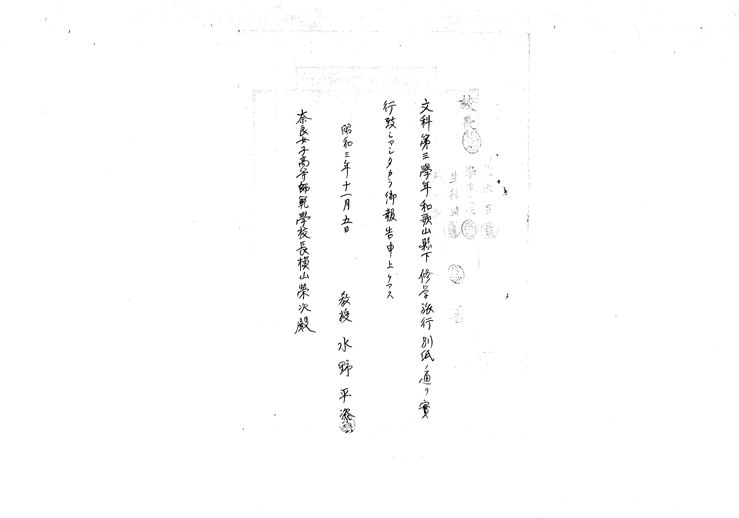 校長
文科第三學年和歌山縣下修学旅行別紙ノ通リ實
行致シマシタカラ御報告申上ゲマス
昭和三年十一月五日
教授 水野平次
奈良女子高等師範學校長横山榮次殿